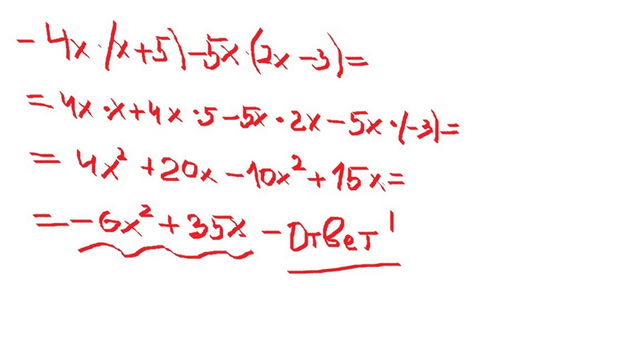 - 4x·(x+5)-5x·(2x-3)=
= 4x·x+4x·5-5x·2x-5x·(-3)=
= 4x²+20x-10x²+15x=
= -6x²+35x - Ответ!